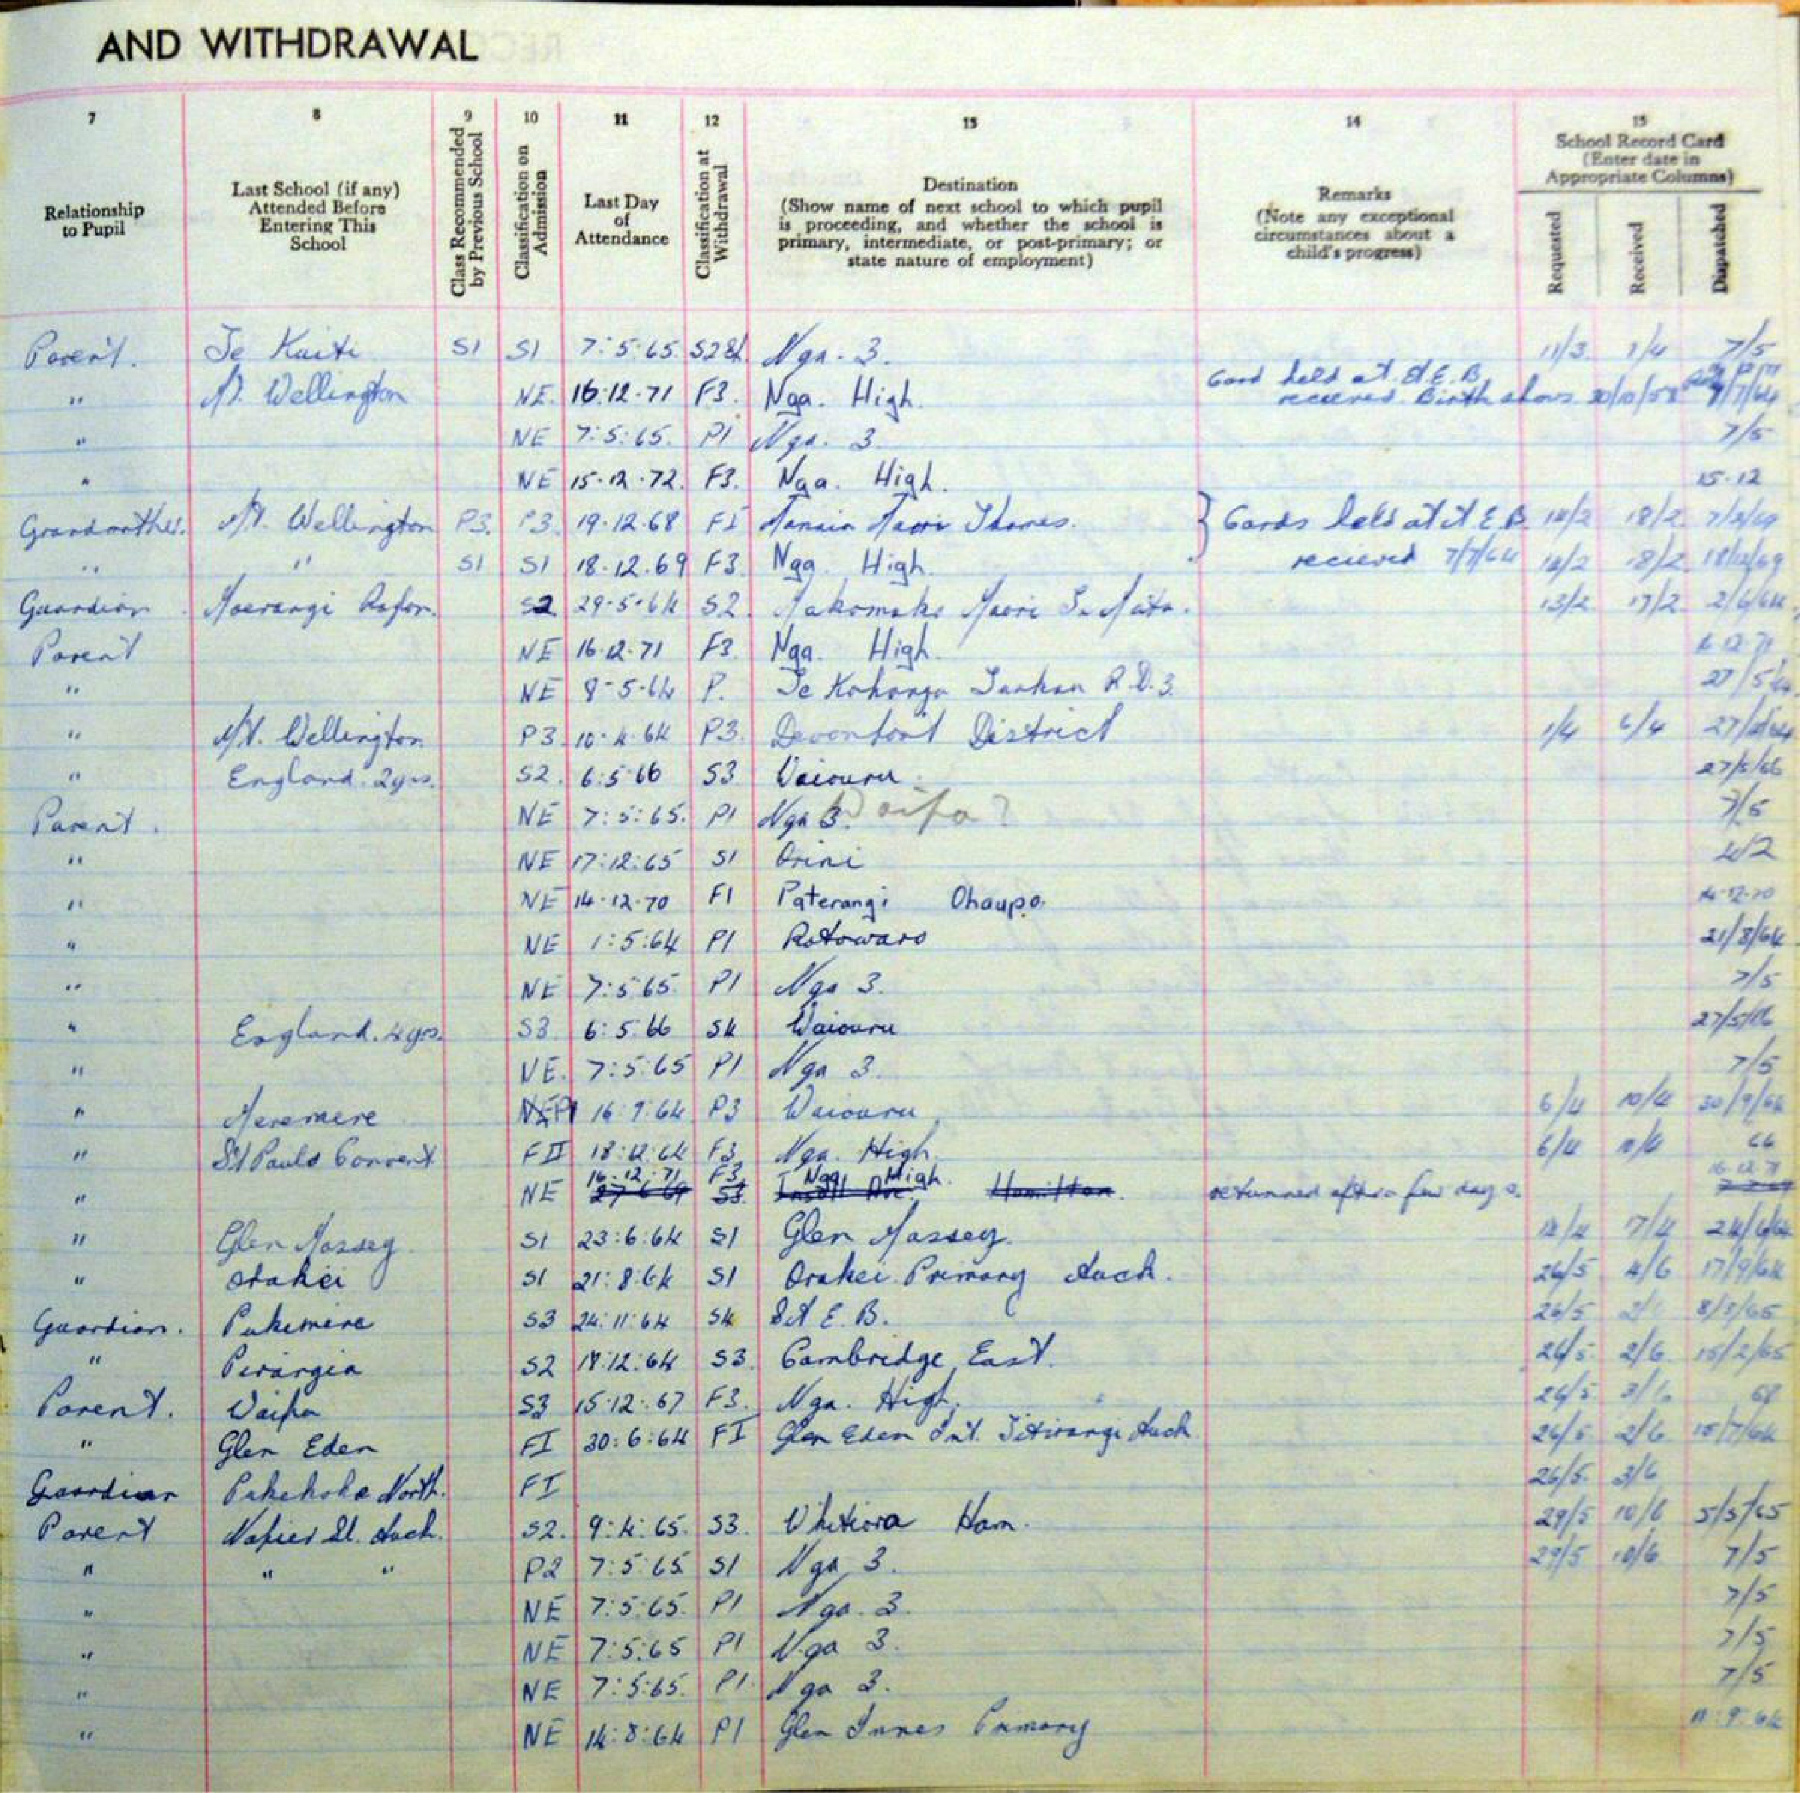 AND WITHDRAWAL
7 8 9 10 11 12 13 14 15
Relationship to Pupil
Last School (if any) Attended Before Entering This School
Class Recommended by Previous School
Classification on Admission
Last Day of Attendance
Classification at Withdrawal
Destination
(Show name of next school to which pupil is proceeding, and whether the school is primary, intermediate, or post-primary; or state nature of employment)
Remarks
(Note any exceptional circumstances about a child's progress)
School Record Card
(Enter date in Appropriate Columns)
Requested Received Dispatched
Parent. Te Kuiti S1 S1 7:5:65 Nga. 3. 11/3 7/5
" Mt. Wellington NE. 16.12.71 F3. Nga. High. Card held at recieved. Birth shows
" NE 7:5:65. P1 Nga. 3. 7/5
" NE 15.12.72. F3. Nga. High. 15.12
Grandmother. Mt. Wellington P3. P3. 19.12.68 F1 } Cards held at 18/2
" " S1 S1 18.12.69 F3. Nga. High. recieved 7/7/64 18/2 18/12/69
Guardian S2 29.5.64 S2. 13/2 17/2 2/6/64
Parent NE 16.12.71 F3. Nga. High. 16.12.71
" NE 8-5-64 P. Te Kohanga Tuakau R.D.3.
" Mt. Wellington P3. 10.4.64 P3. Devonport District 1/4 6/4
" England. 2yrs. S2. 6:5:66 S3 Waiouru. 27/5/66
Parent. NE 7:5:65. P1 Nga 3. Waipa? 7/5
" NE 17:12:65 S1 Orini 4/2
" NE 14.12.70 F1 Paterangi Ohaupo. 14.12.70
" NE 1:5:64 P1 Rotowaro 21/8/64
" NE 7:5:65 P1 Nga 3. 7/5
" England. 4yrs. S3. 6:5:66 S4 Waiouru 27/5/66
" NE. 7:5:65 P1 Nga 3. 7/5
" Meremere NE P1 16:9:64 P3 Waiouru 6/4 10/4 30/9/64
" St Pauls Convent FII 18:12:64 F3. Nga. High. 6/4
" NE 16.12.71 F3. Nga. High. Hamilton. returned after a few days. 16.12.71
" Glen Massey. S1 23:6:64 S1 Glen Massey. 17/4 24/6/64
" Orakei S1 21:8:64 S1 Orakei Primary Auck. 26/5 4/6 17/9/64
Guardian. Pukemiro S3 24:11:64 S4 26/5 8/3/65
" S2 18:12:64 S3. Cambridge East. 26/5 2/6 15/2/65
Parent. Waipa S3 15:12:67 F3. Nga. High. 26/5
" Glen Eden FI 30:6:64 FI Glen Eden Int. Titirangi Auck. 26/5 2/6 15/7/64
Guardian Pukekohe North. FI 26/5. 3/6
Parent Napier St. Auck. S2. 9:4:65. S3. Whitiora Ham. 29/5 10/6 5/5/65
" " " P2 7:5:65 S1 Nga 3. 29/5 10/6 7/5
" NE 7:5:65. P1 Nga. 3. 7/5
" NE 7:5:65 P1 Nga 3. 7/5
" NE 7:5:65. P1. Nga 3. 7/5
" NE 14:8:64 P1 Glen Innes Primary 11:9:64